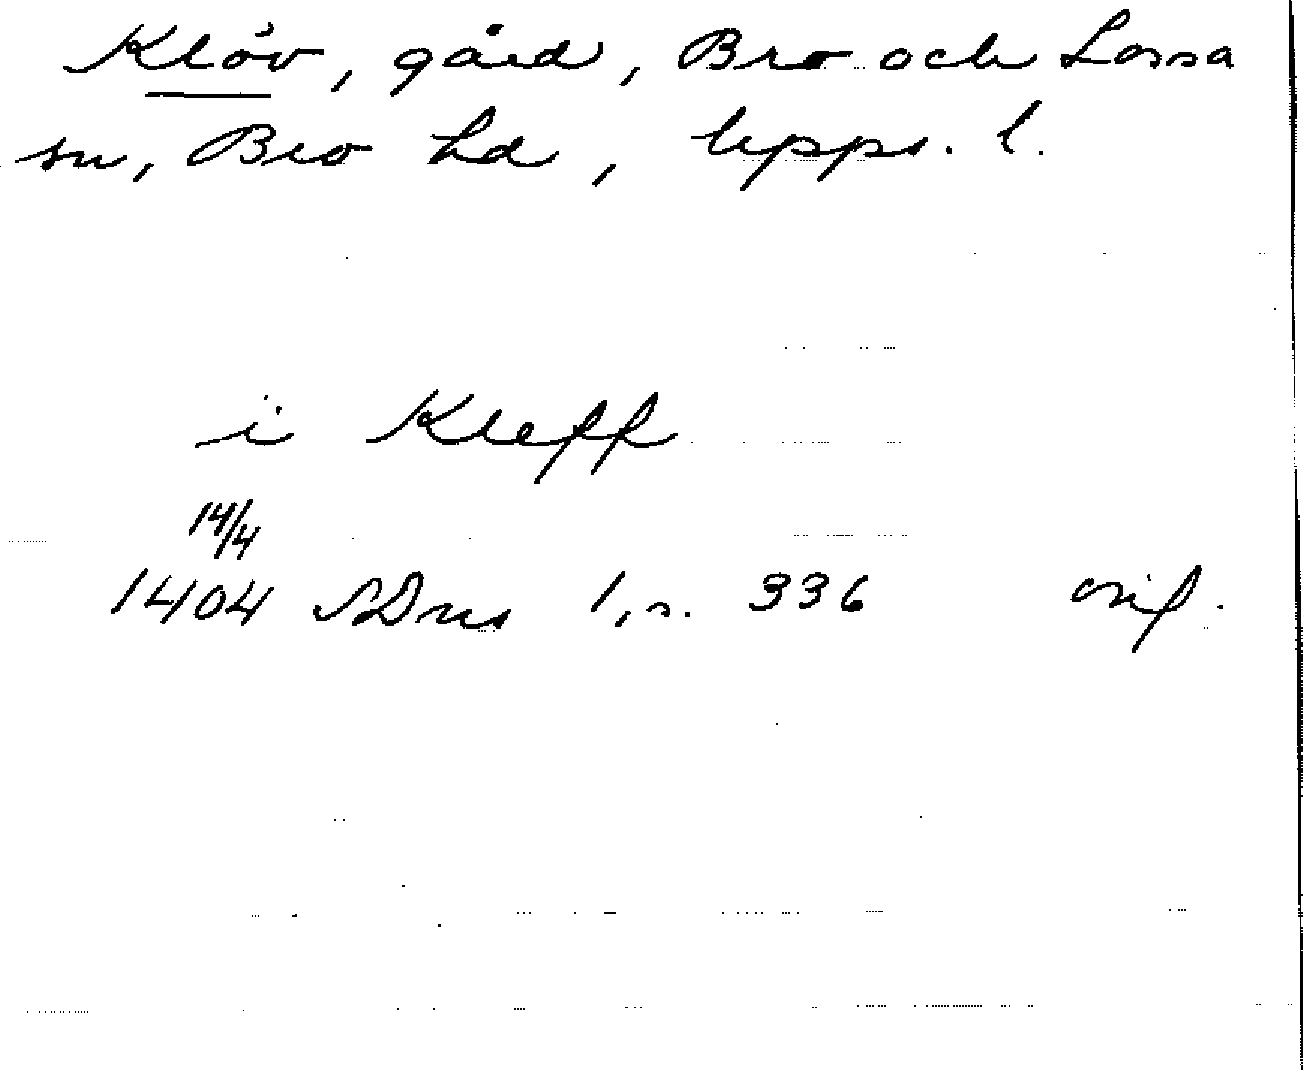 Klöv, gård, Bro och Lossa
sn, Bro hd, Upps. l.
i Kleff
14/4
1404 SDns 1, s. 336 orig.